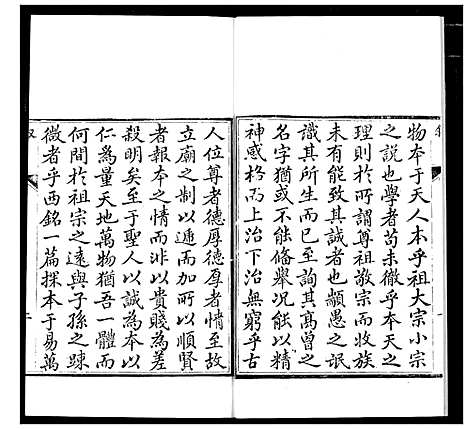 物本于天人本乎祖大宗小宗
之說也學者茍未徹乎本天之
理則於所謂尊祖敬宗而收族
未有能致其誠者也顓愚之氓
識其所生而已至詢其高曾之
名字猶或不能備舉况能以精
神感格而上治下治無窮乎古
人位尊者德厚德厚者情至故
立廟之制以遞而加所以順賢
者報本之情而非以貴賤為差
殺明矣至于聖人以誠為本以
仁為量天地萬物猶吾一體而
何間於祖宗之遠與子孫之疎
微者乎西銘一篇探本于易萬
二